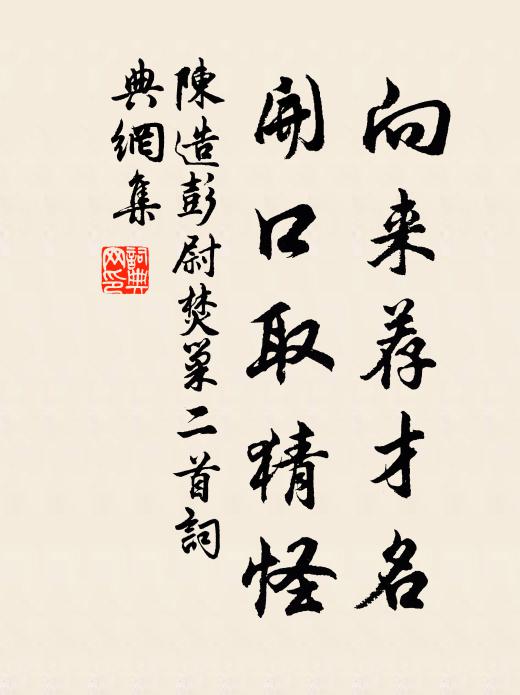 向来荐才名
開口取猜怪
陳造彭尉焚巢二首詞
典網集
詞典
网印